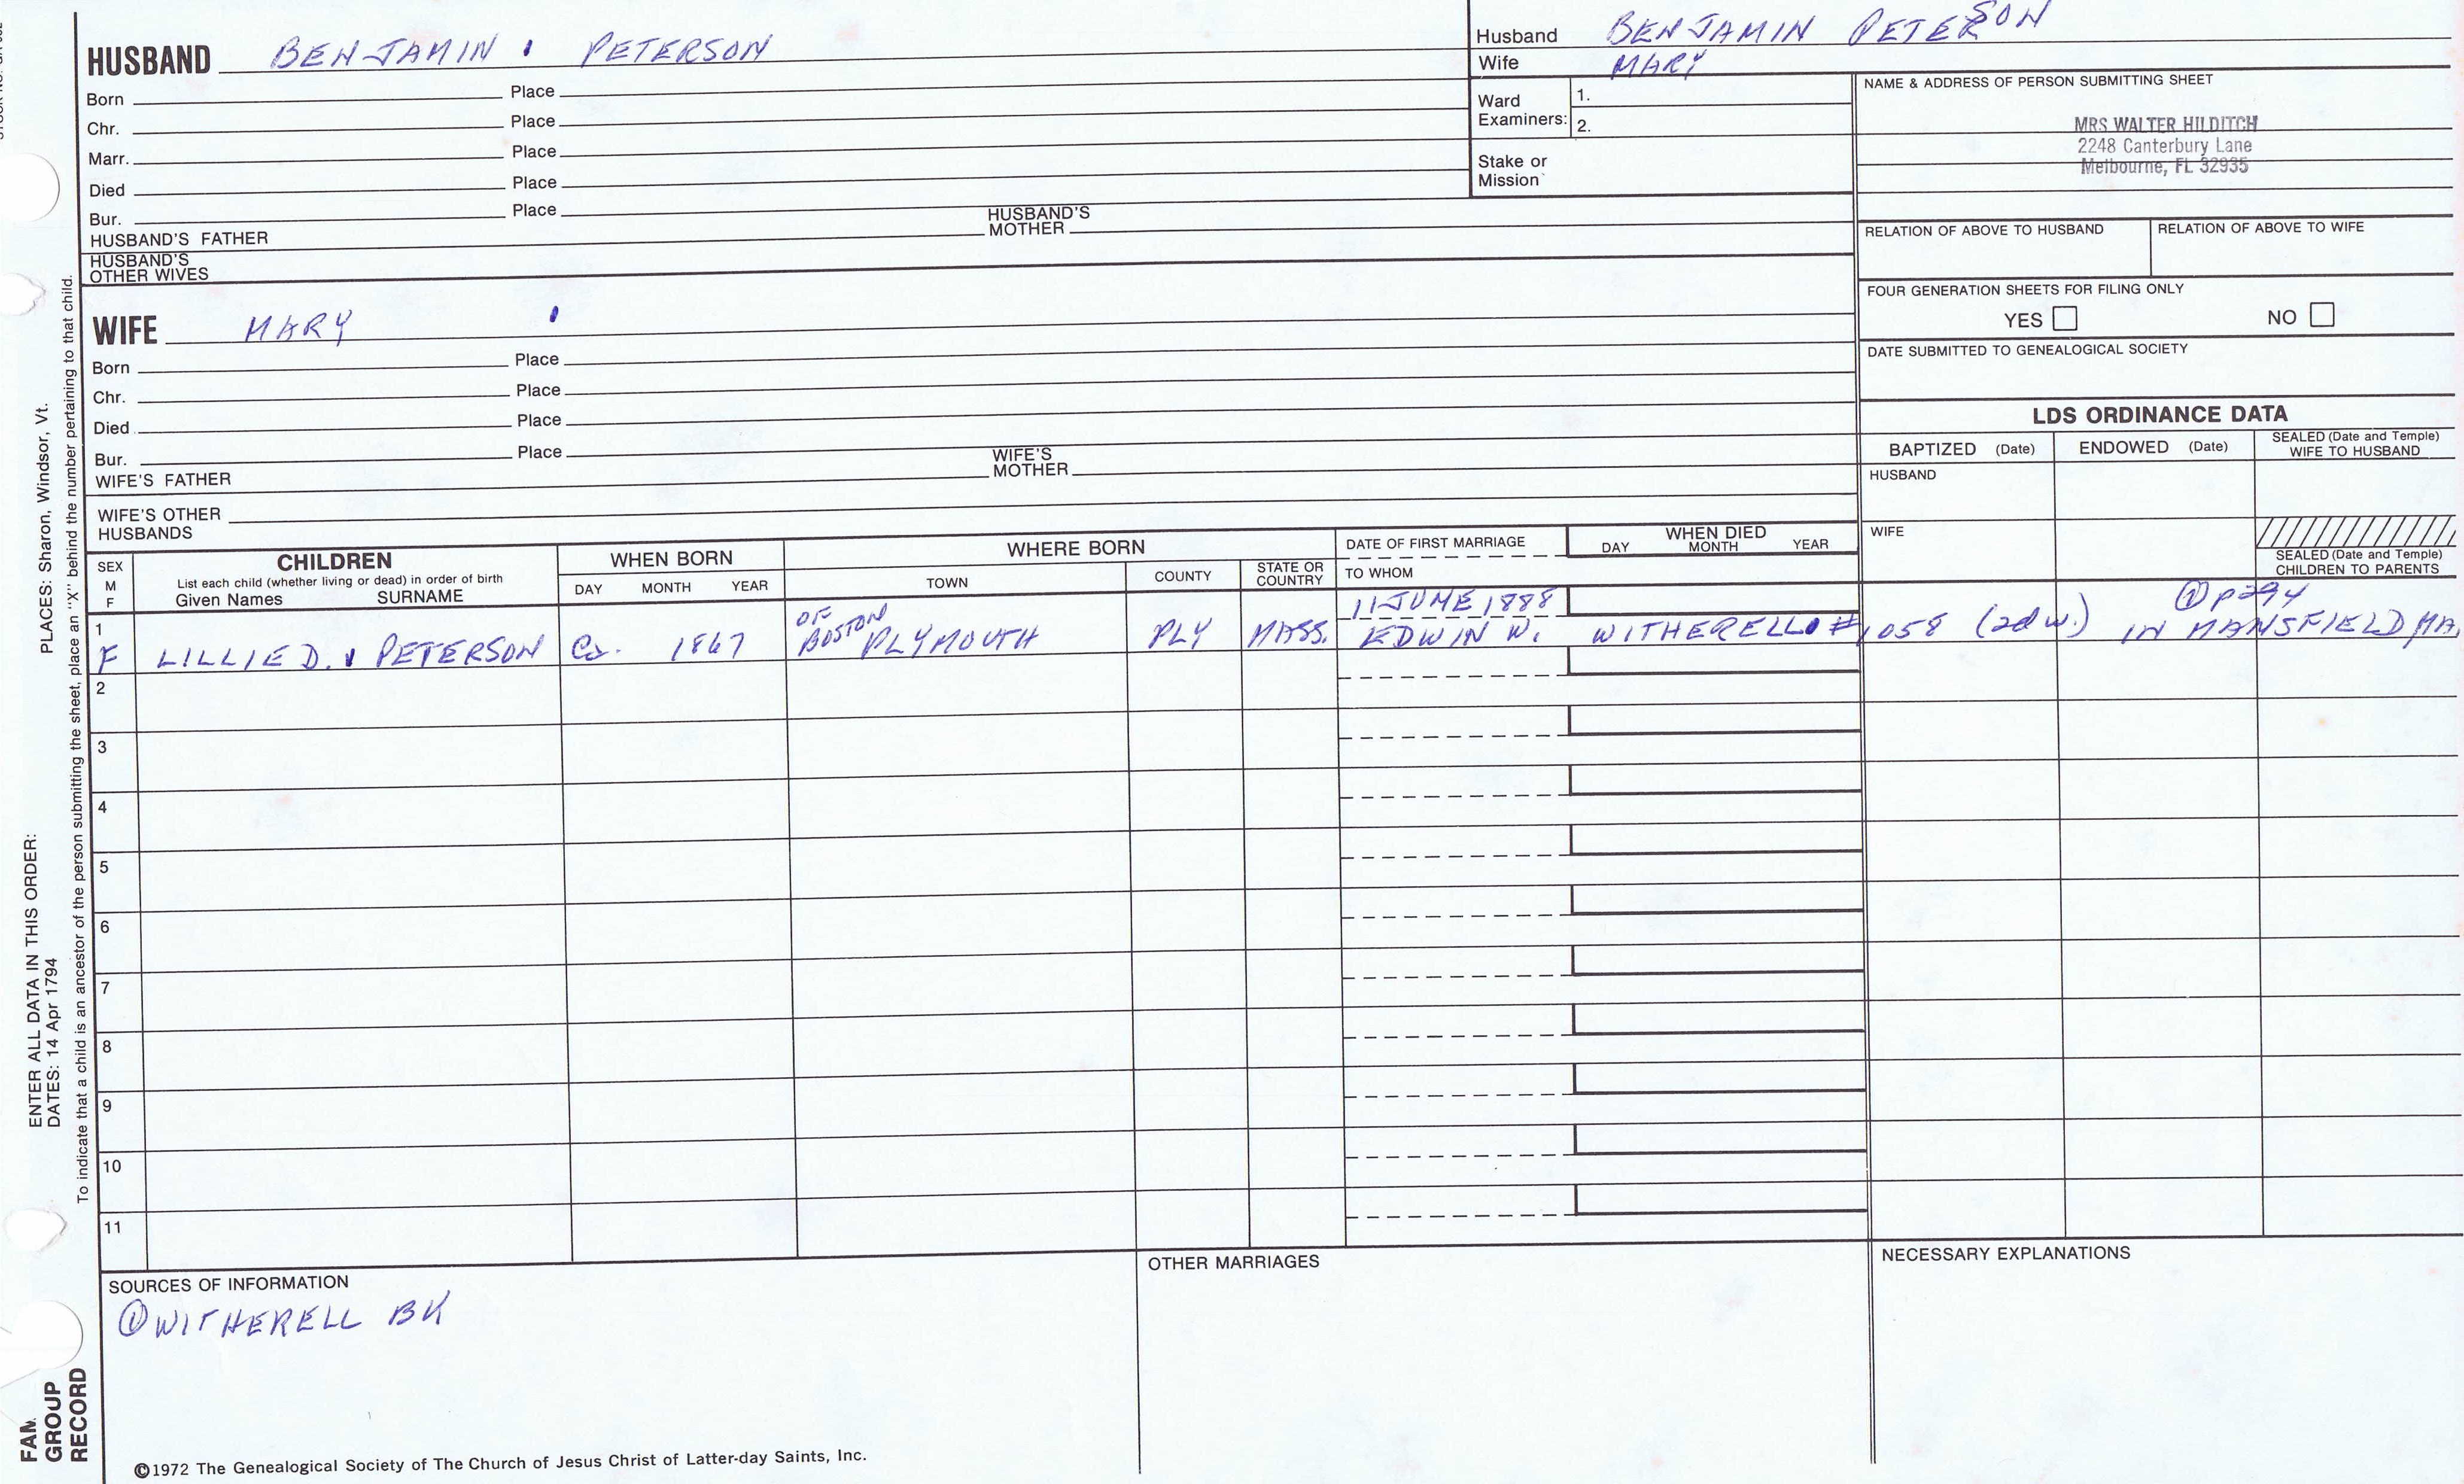 HUSBAND BENJAMIN PETERSON
Born Place
Chr. Place
Marr. Place
Died Place
Bur. Place
HUSBAND'S FATHER HUSBAND'S MOTHER
HUSBAND'S OTHER WIVES
WIFE MARY
Born Place
Chr. Place
Died Place
Bur. Place
WIFE'S FATHER WIFE'S MOTHER
WIFE'S OTHER HUSBANDS
Husband BENJAMIN PETERSON
Wife MARY
Ward Examiners: 1.
2.
Stake or Mission
NAME & ADDRESS OF PERSON SUBMITTING SHEET
MRS WALTER HILDITCH
2248 Canterbury Lane
Melbourne, FL 32935
RELATION OF ABOVE TO HUSBAND RELATION OF ABOVE TO WIFE
FOUR GENERATION SHEETS FOR FILING ONLY
YES NO
DATE SUBMITTED TO GENEALOGICAL SOCIETY
LDS ORDINANCE DATA
BAPTIZED (Date) ENDOWED (Date) SEALED (Date and Temple) WIFE TO HUSBAND
HUSBAND
WIFE
SEALED (Date and Temple) CHILDREN TO PARENTS
SEX M F
CHILDREN
List each child (whether living or dead) in order of birth
Given Names SURNAME
WHEN BORN
DAY MONTH YEAR
WHERE BORN
TOWN COUNTY STATE OR COUNTRY
DATE OF FIRST MARRIAGE
TO WHOM
WHEN DIED
DAY MONTH YEAR
1 OF BOSTON 11 JUNE 1888 ① p294
F LILLIE D. PETERSON Ca. 1867 PLYMOUTH PLY MASS. EDWIN W. WITHERELL #1058 (2d w.) IN MANSFIELD MA.
2
3
4
5
6
7
8
9
10
11
SOURCES OF INFORMATION
① WITHERELL BK
OTHER MARRIAGES
NECESSARY EXPLANATIONS
©1972 The Genealogical Society of The Church of Jesus Christ of Latter-day Saints, Inc.
ENTER ALL DATA IN THIS ORDER:
DATES: 14 Apr 1794
PLACES: Sharon, Windsor, Vt.
To indicate that a child is an ancestor of the person submitting the sheet, place an "X" behind the number pertaining to that child.
GROUP
RECORD